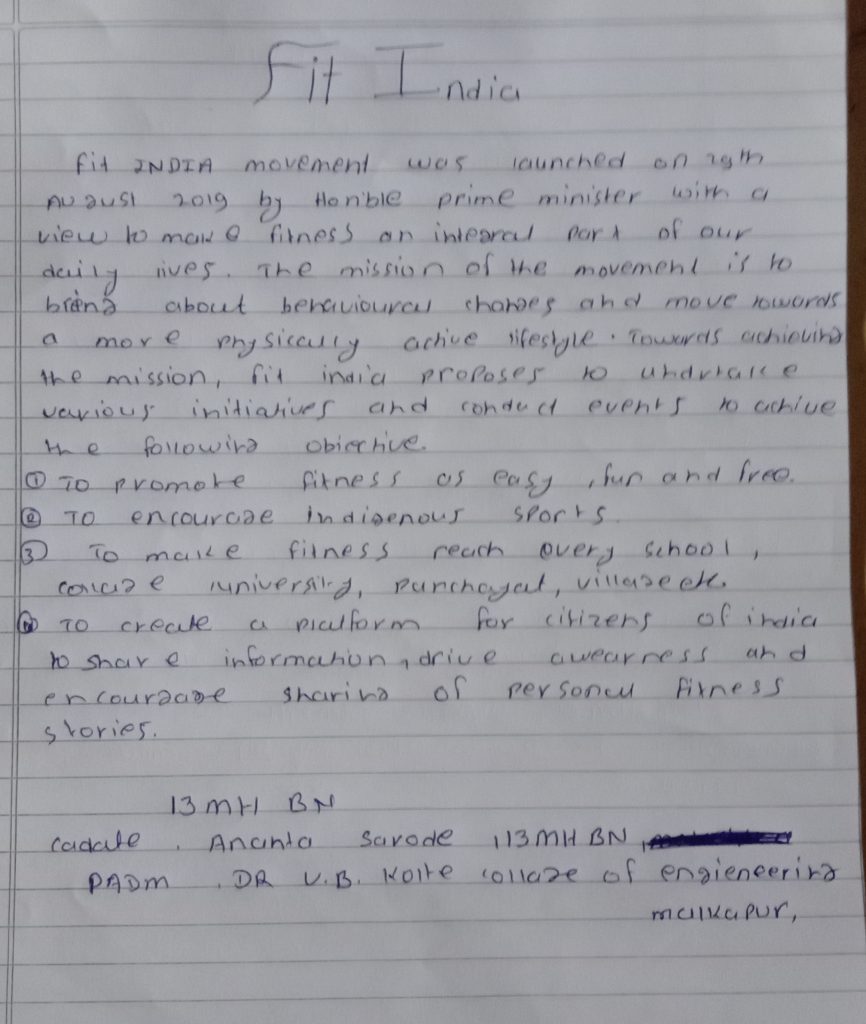 Fit India
Fit INDIA movement was launched on 29th
August 2019 by Hon'ble prime minister with a
view to make fitness an integral part of our
daily lives. The mission of the movement is to
bring about behavioural changes and move towards
a more physically active lifestyle. Towards achieving
the mission, fit india proposes to undrtake
various initiatives and conduct events to achive
the following objective.
① To promote fitness as easy, fun and free.
② To encourage indigenous sports.
③ To make fitness reach every school,
collage university, panchayat, village etc.
④ To create a platform for citizens of india
to share information, drive awearness and
encouragge sharing of personal fitness
stories.
13 MH BN
cadate. Ananta Sarode, 13 MH BN,
PADM. DR V.B. Kolte collage of engieneering
malkapur,